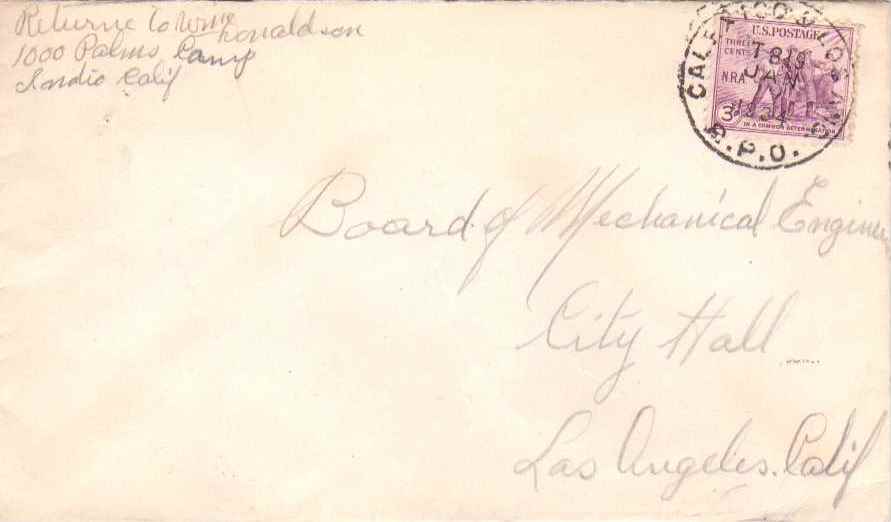 Returne to Wm Donaldson
1000 Palms Camp
Indio Calif
CALEXICO & LOS ANG.
R.P.O.
T 819
JAN
1934
U.S. POSTAGE
THREE CENTS
N.R.A.
3¢
IN A COMMON DETERMINATION
Board of Mechanical Engine
City Hall
Los Angeles. Calif